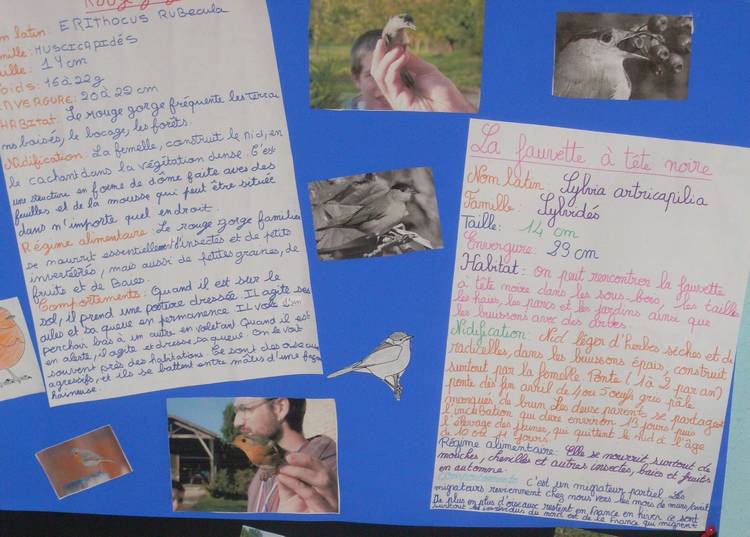 Rouge gorge
m latin: ERITHOCUS RUBECULA
amille: MUSCICAPIDÉS
aille: 14 cm
Poids: 16 à 22 g
ENVERGURE: 20 à 22 cm
HABITAT: Le rouge gorge fréquente les terrai
ns boisés, le bocage, les forêts.
Nidification: La femelle, construit le nid, en
le cachant dans la végétation dense. C'est
une structure en forme de dôme faite avec des
feuilles et de la mousse qui peut être située
dans n'importe quel endroit.
Régime alimentaire: Le rouge gorge familier
se nourrit essentiellement d'insectes et de petits
invertébrés, mais aussi de petites graines, de
fruits et de Baies.
Comportements: Quand il est sur le
sol, il prend une posture dressée. Il agite ses
ailes et sa queue en permanence. Il vole d'un
perchoir bas à un autre en voletant. Quand il est
en alerte, il agite et dresse sa queue. On le voit
souvent près des habitations. Ce sont des oiseaux
agressifs, et ils se battent entre mâles d'une façon
haineuse.
La fauvette à tête noire
Nom latin: Sylvia artricapilia
Famille: Sylvidés
Taille: 14 cm
Envergure: 23 cm
Habitat: on peut rencontrer la fauvette
à tête noire dans les sous-bois, les taillis
les haies, les parcs et les jardins ainsi que
les buissons avec des arbres.
Nidification: Nid léger d'herbes sèches et de
radicelles, dans les buissons épais, construit
surtout par la femelle. Ponte (1 à 2 par an)
ponte dès fin avril de 4 ou 5 oeufs gris pâle
marqués de brun. Les deux parents se partagent
l'incubation qui dure environ 13 jours puis
l'élevage des jeunes, qui quittent le nid à l'âge
de 10 à 14 jours.
Régime alimentaire: Elle se nourrit surtout de
mouches, chenilles et autres insectes, baies et fruits
en automne.
Comportements: c'est un migrateur partiel. Les
migrateurs reviennent chez nous vers les mois de mars/avril
De plus en plus d'oiseaux restent en France en hiver ce sont
surtout les individus du nord est de la France qui migrent